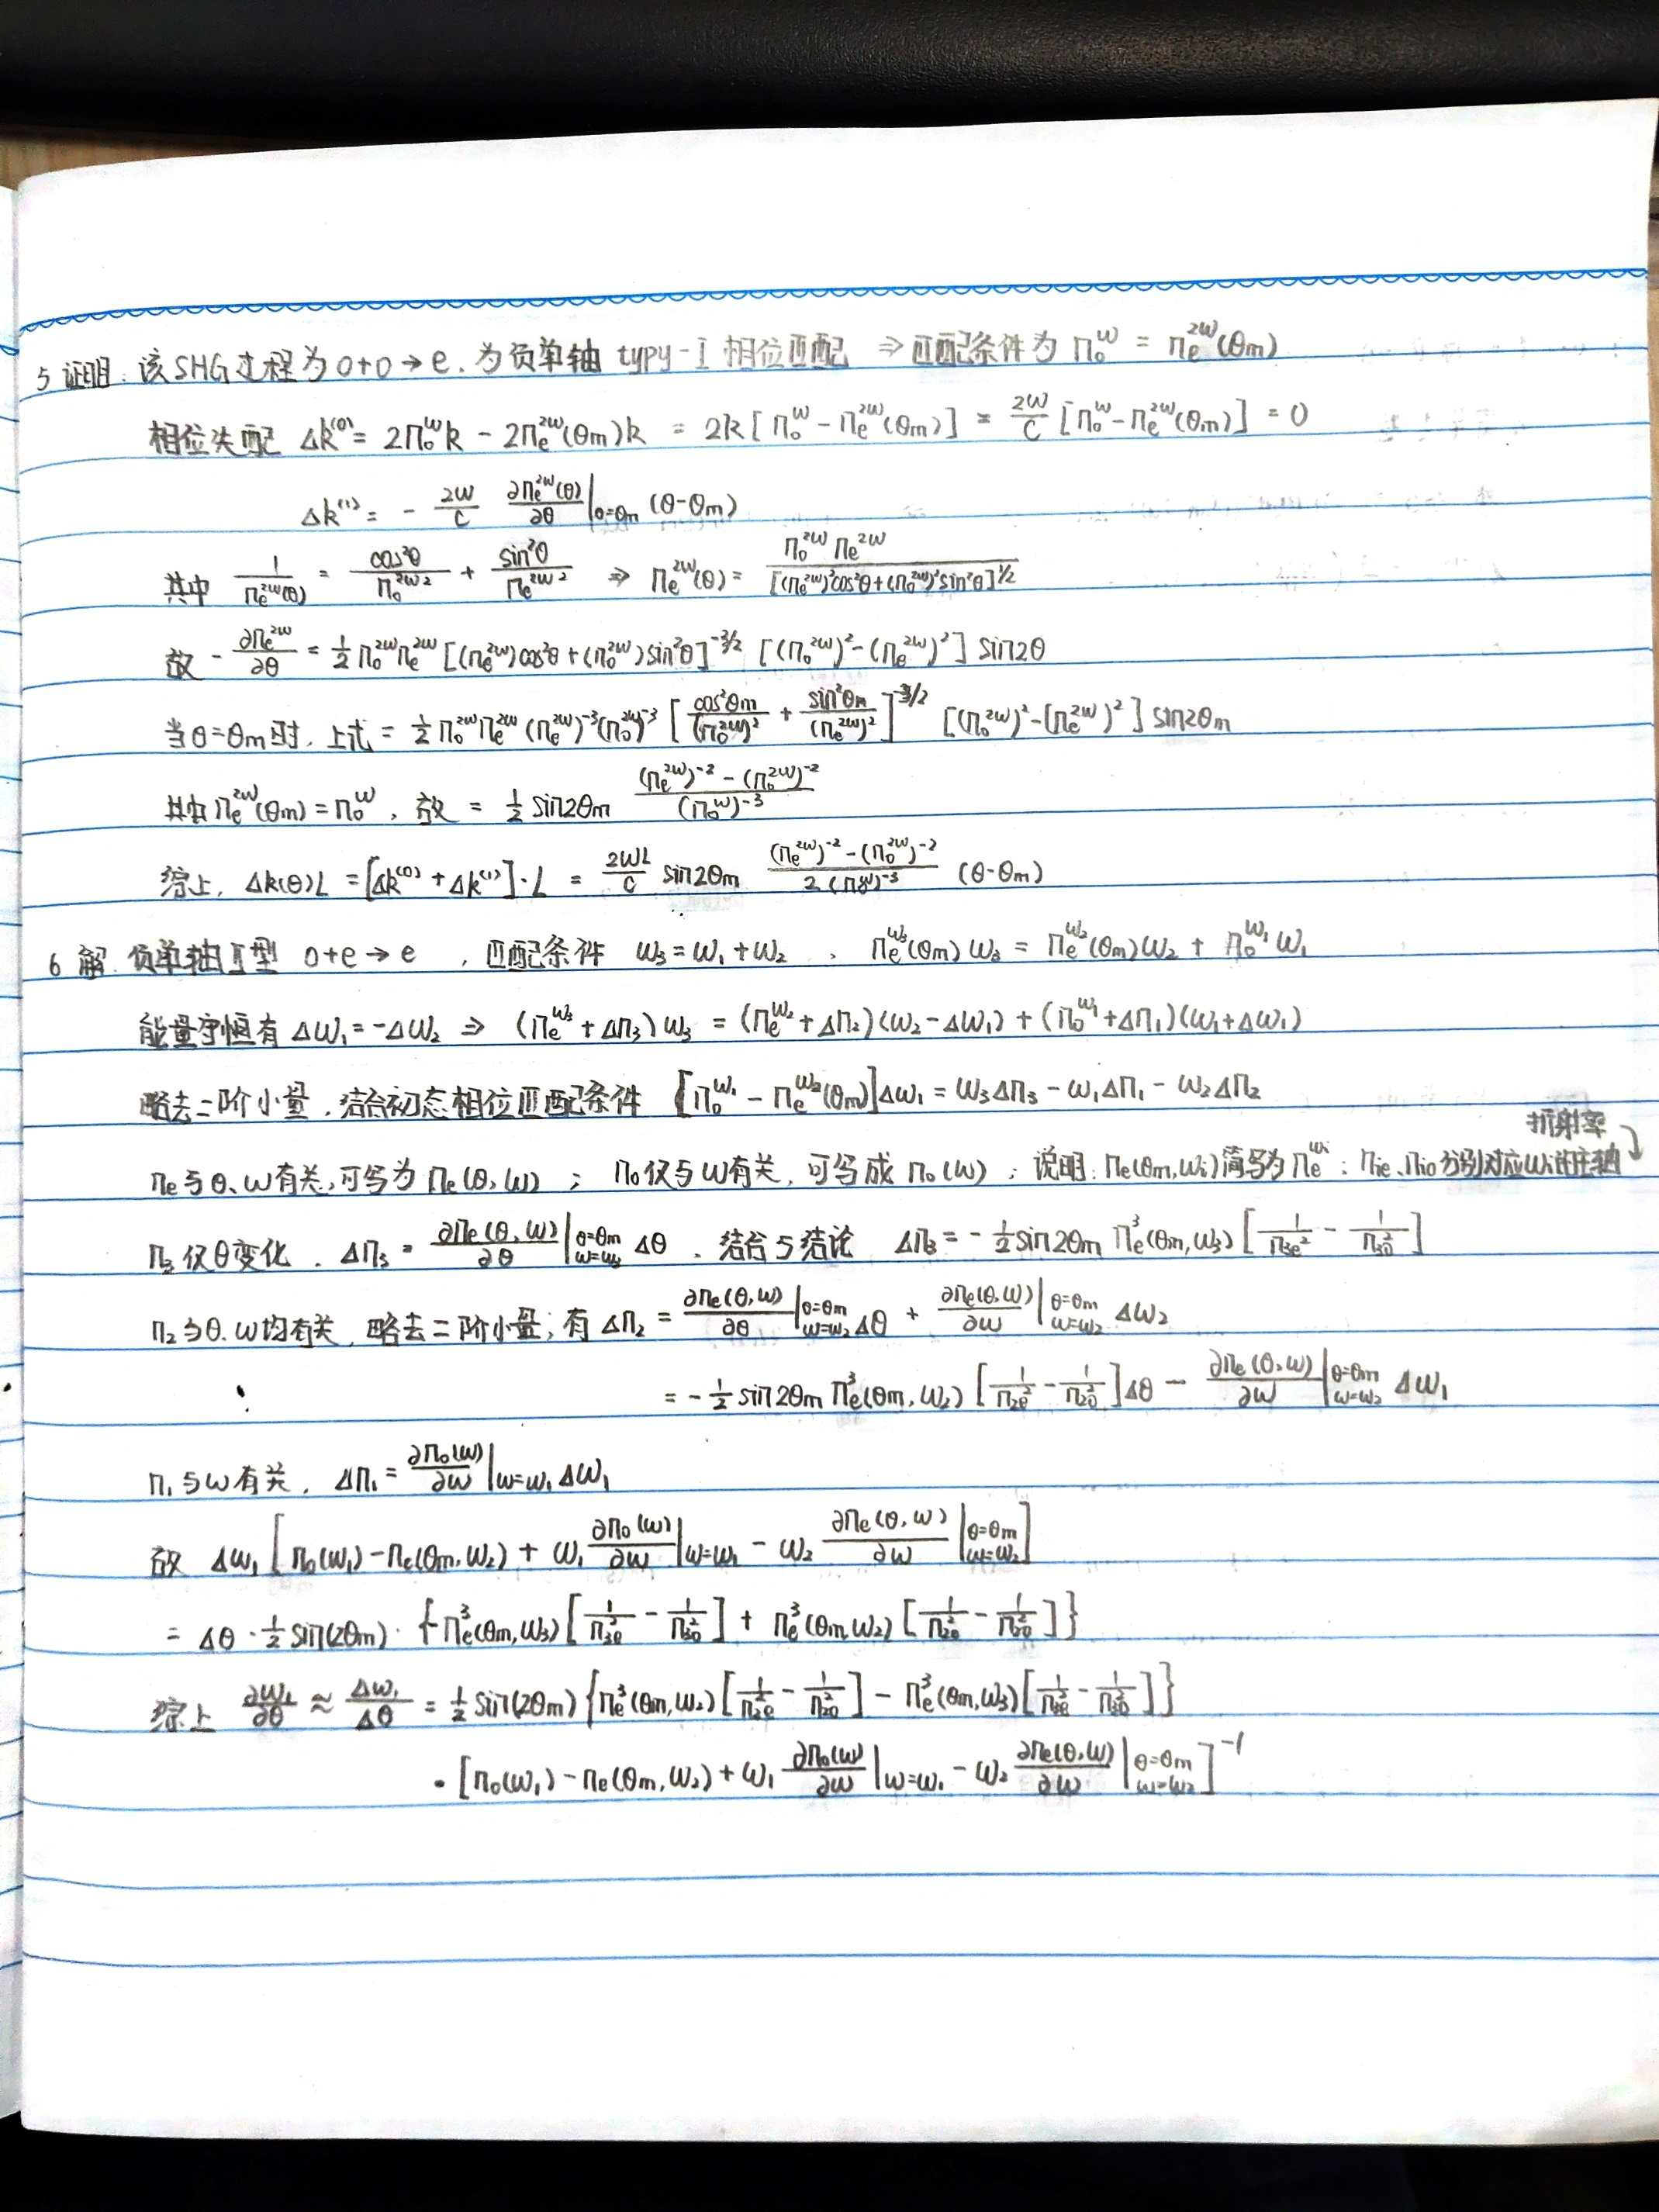 5 证明: 该SHG过程为 o+o→e. 为负单轴 typy-I 相位匹配 ⇒ 匹配条件为 n_o^ω = n_e^{2ω}(θm)
相位失配 Δk^{(0)} = 2n_o^ω k - 2n_e^{2ω}(θm)k = 2k[n_o^ω - n_e^{2ω}(θm)] = 2ω/c [n_o^ω - n_e^{2ω}(θm)] = 0
Δk^{(1)} = - 2ω/c ∂n_e^{2ω}(θ)/∂θ |_{θ=θm} (θ-θm)
其中 1/n_e^{2ω}(θ) = cos²θ/n_o^{2ω 2} + sin²θ/n_e^{2ω 2} ⇒ n_e^{2ω}(θ) = n_o^{2ω} n_e^{2ω} / [(n_e^{2ω})²cos²θ+(n_o^{2ω})²sin²θ]^{1/2}
故 - ∂n_e^{2ω}/∂θ = 1/2 n_o^{2ω} n_e^{2ω} [(n_e^{2ω})cos²θ+(n_o^{2ω})sin²θ]^{-3/2} [(n_o^{2ω})²-(n_e^{2ω})²] sin2θ
当θ=θm时, 上式 = 1/2 n_o^{2ω} n_e^{2ω} (n_e^{2ω})^{-3} (n_o^{2ω})^{-3} [cos²θm/(n_o^{2ω})² + sin²θm/(n_e^{2ω})²]^{-3/2} [(n_o^{2ω})²-(n_e^{2ω})²] sin2θm
其中 n_e^{2ω}(θm) = n_o^ω, 故 = 1/2 sin2θm ((n_e^{2ω})^{-2} - (n_o^{2ω})^{-2}) / (n_o^ω)^{-3}
综上, Δk(θ)L = [Δk^{(0)} + Δk^{(1)}]·L = 2ωL/c sin2θm ((n_e^{2ω})^{-2} - (n_o^{2ω})^{-2}) / 2(n_o^ω)^{-3} (θ-θm)
6 解. 负单轴Ⅱ型 o+e→e , 匹配条件 ω3=ω1+ω2 , n_e^{ω3}(θm)ω3 = n_e^{ω2}(θm)ω2 + n_o^{ω1}ω1
能量守恒有 Δω1=-Δω2 ⇒ (n_e^{ω3}+Δn3)ω3 = (n_e^{ω2}+Δn2)(ω2-Δω1) + (n_o^{ω1}+Δn1)(ω1+Δω1)
略去二阶小量, 结合初态相位匹配条件 [n_o^{ω1} - n_e^{ω2}(θm)]Δω1 = ω3Δn3 - ω1Δn1 - ω2Δn2
折射率
ne与θ、ω有关,可写为 ne(θ,ω) ; no仅与ω有关, 可写成 no(ω) ; 说明: ne(θm,ωi)简写为 n_e^{ωi} ; nie、nio分别对应ωi的主轴
n3仅θ变化, Δn3 = ∂ne(θ,ω)/∂θ |_{θ=θm ω=ω3} Δθ , 结合5结论 Δn3 = -1/2 sin2θm n_e³(θm,ω3) [1/n_{3e}² - 1/n_{3o}²]
n2与θ.ω均有关, 略去二阶小量; 有 Δn2 = ∂ne(θ,ω)/∂θ |_{θ=θm ω=ω2} Δθ + ∂ne(θ,ω)/∂ω |_{θ=θm ω=ω2} Δω2
= -1/2 sin2θm n_e³(θm,ω2) [1/n_{2e}² - 1/n_{2o}²]Δθ - ∂ne(θ,ω)/∂ω |_{θ=θm ω=ω2} Δω1
n1与ω有关, Δn1 = ∂no(ω)/∂ω |_{ω=ω1} Δω1
故 Δω1 [no(ω1) - ne(θm,ω2) + ω1 ∂no(ω)/∂ω |_{ω=ω1} - ω2 ∂ne(θ,ω)/∂ω |_{θ=θm ω=ω2}]
= Δθ·1/2 sin(2θm)·{-n_e³(θm,ω3) [1/n_{3e}² - 1/n_{3o}²] + n_e³(θm,ω2) [1/n_{2e}² - 1/n_{2o}²]}
综上 ∂ω1/∂θ ≈ Δω1/Δθ = 1/2 sin(2θm) {n_e³(θm,ω2) [1/n_{2e}² - 1/n_{2o}²] - n_e³(θm,ω3) [1/n_{3e}² - 1/n_{3o}²]}
· [no(ω1) - ne(θm,ω2) + ω1 ∂no(ω)/∂ω |_{ω=ω1} - ω2 ∂ne(θ,ω)/∂ω |_{θ=θm ω=ω2}]^{-1}